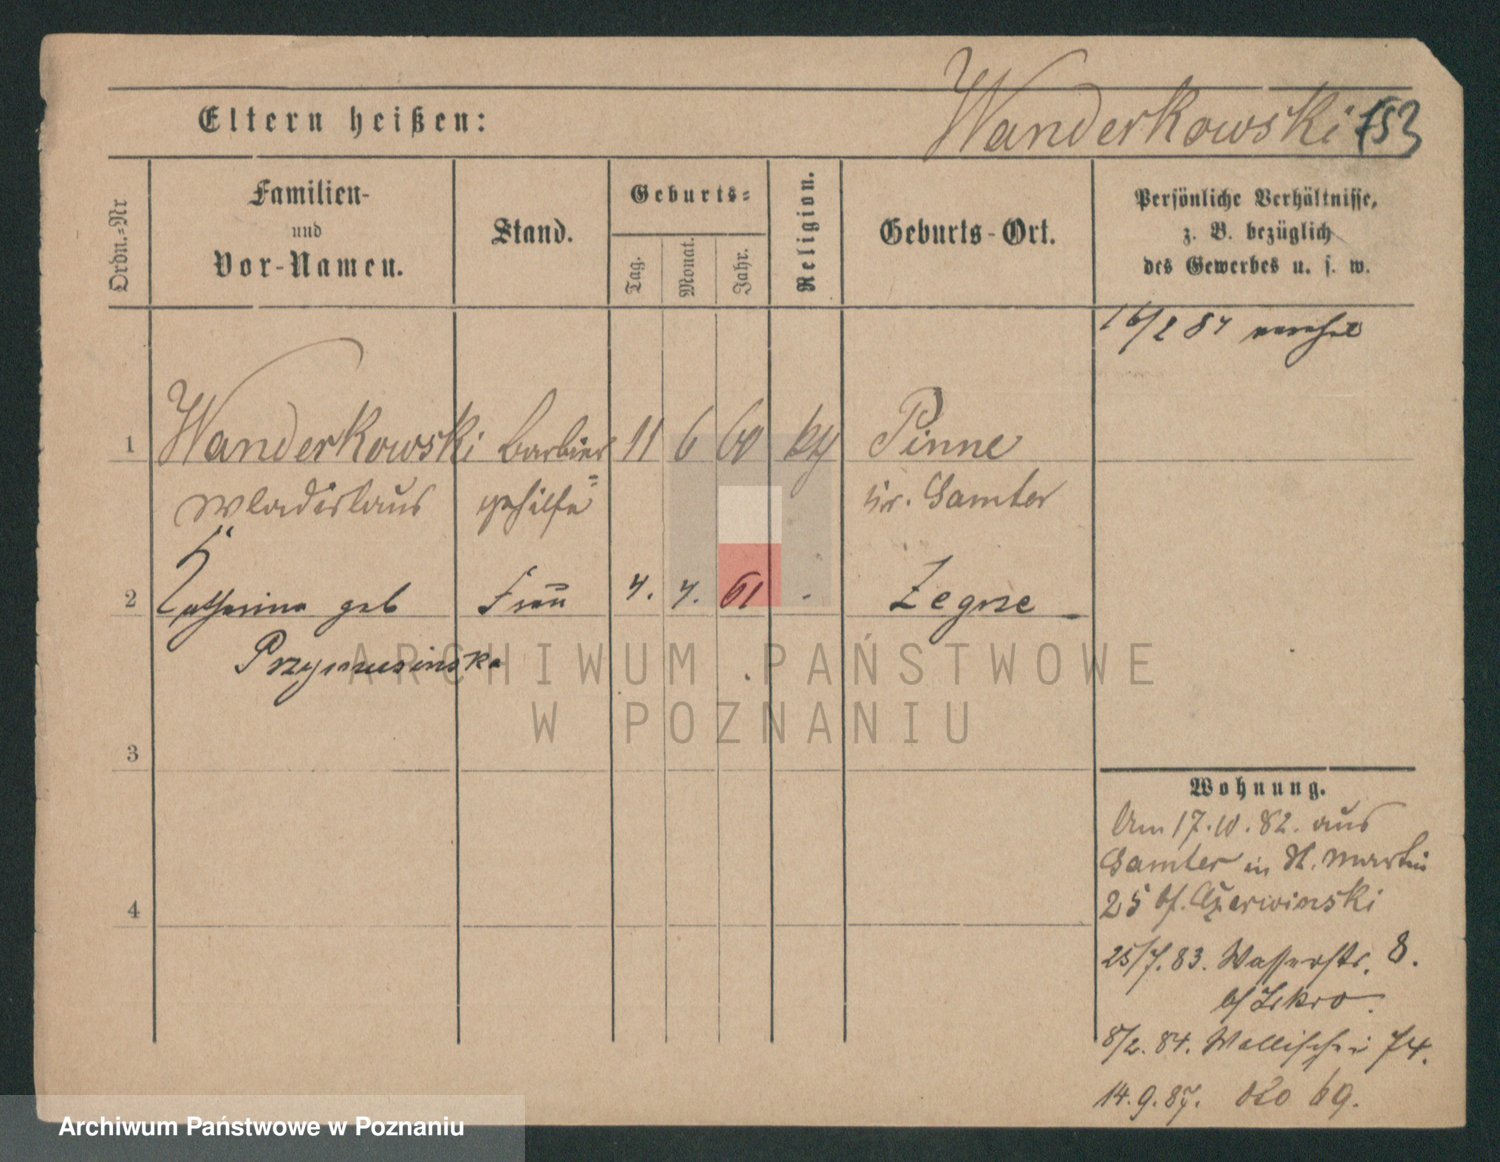 Eltern heißen: Wanderkowski 153
Ordn.=Nr
Familien-
und
Vor-Namen.
Stand.
Geburts=
Tag. Monat. Jahr.
Religion.
Geburts-Ort.
Persönliche Verhältnisse,
z. B. bezüglich
des Gewerbes u. s. w.
16/2 84 verehel
1 Wanderkowski Barbier 11 6 60 Pinne
Wladislaus gehilfe Kr. Samter
2 Katharina geb Frau 4. 4. 61 Zegrze
Przymusinska
3
4
Wohnung.
Am 17.10.82. aus
Samter in St. Martin
25 bf. Czerwinski
25/7.83. Wasserstr. 8.
8/2.84. Wallischei 74.
14.9.87. 69.
ARCHIWUM PAŃSTWOWE
W POZNANIU
Archiwum Państwowe w Poznaniu